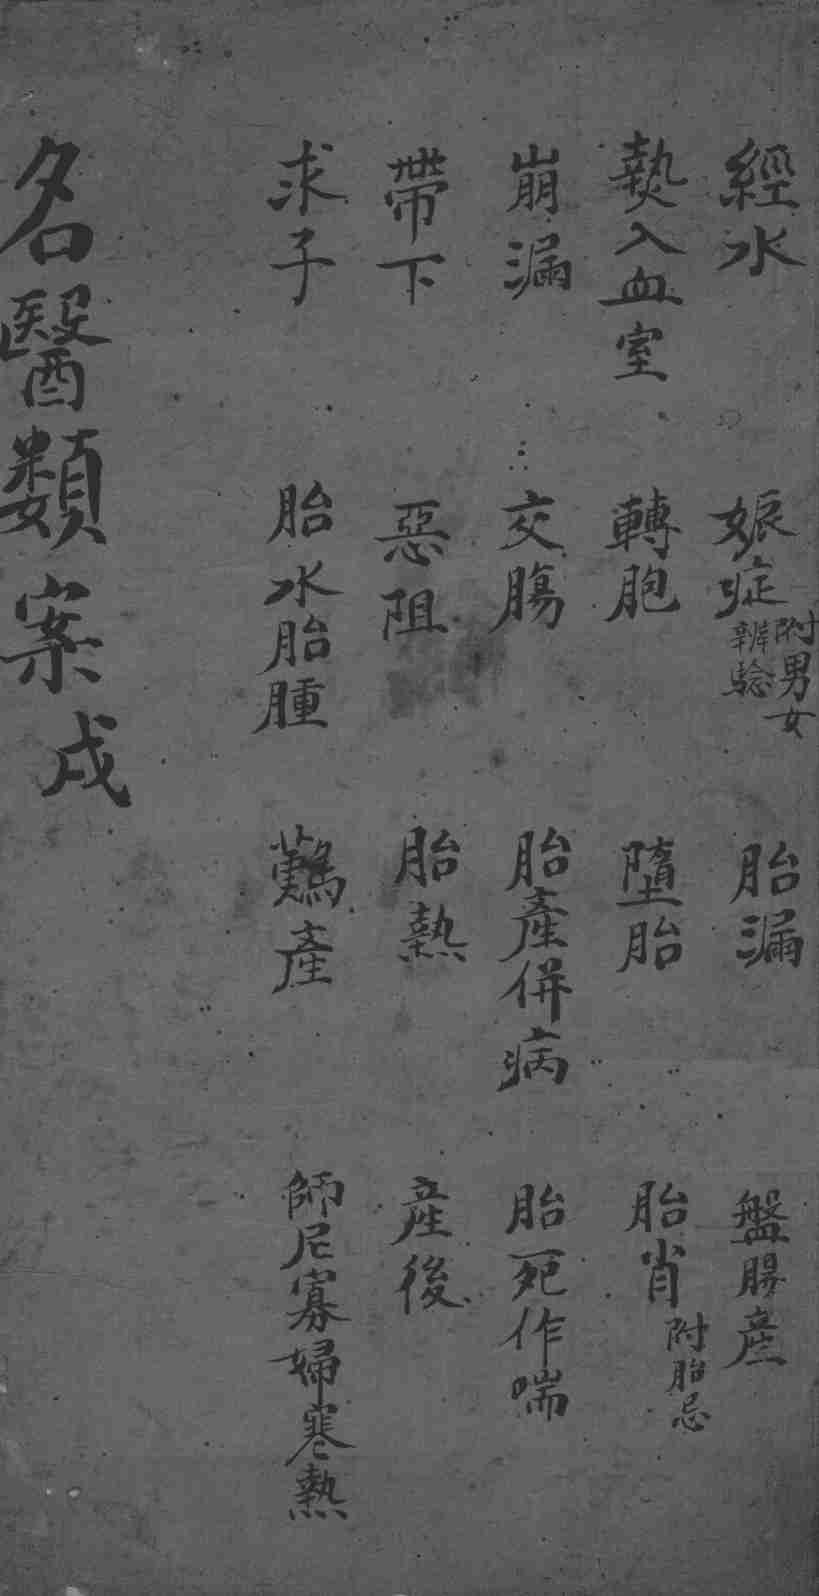 經水 娠症附男女辨騐 胎漏 盤腸產
熱入血室 轉胞 墮胎 胎肖附胎忌
崩漏 交腸 胎產併病 胎死作喘
帶下 惡阻 胎熱 產後
求子 胎水胎腫 難產 師尼寡婦寒熱
名醫類案戌